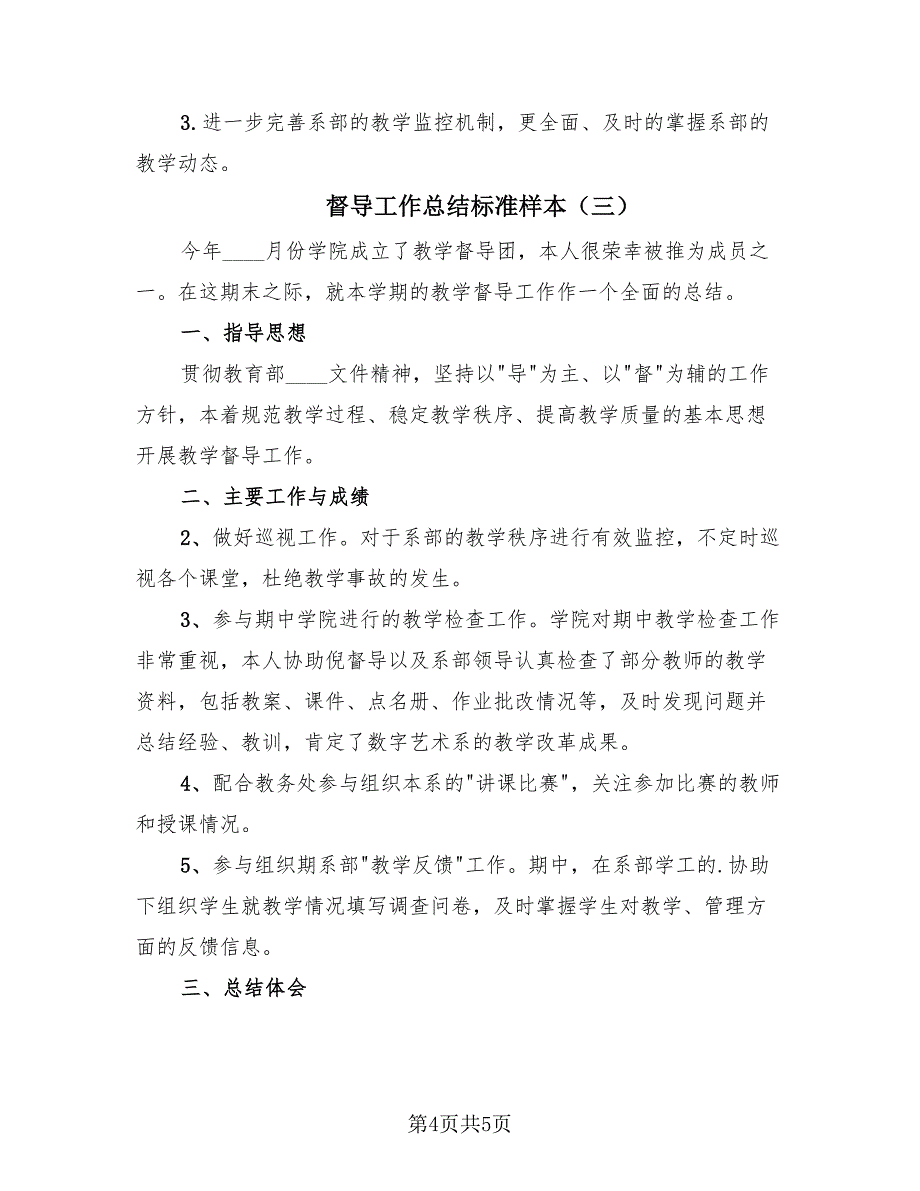 3.进一步完善系部的教学监控机制，更全面、及时的掌握系部的
教学动态。
督导工作总结标准样本（三）
今年____月份学院成立了教学督导团，本人很荣幸被推为成员之
一。在这期末之际，就本学期的教学督导工作作一个全面的总结。
一、指导思想
贯彻教育部____文件精神，坚持以"导"为主、以"督"为辅的工作
方针，本着规范教学过程、稳定教学秩序、提高教学质量的基本思想
开展教学督导工作。
二、主要工作与成绩
2、做好巡视工作。对于系部的教学秩序进行有效监控，不定时巡
视各个课堂，杜绝教学事故的发生。
3、参与期中学院进行的教学检查工作。学院对期中教学检查工作
非常重视，本人协助倪督导以及系部领导认真检查了部分教师的教学
资料，包括教案、课件、点名册、作业批改情况等，及时发现问题并
总结经验、教训，肯定了数字艺术系的教学改革成果。
4、配合教务处参与组织本系的"讲课比赛"，关注参加比赛的教师
和授课情况。
5、参与组织期系部"教学反馈"工作。期中，在系部学工的.协助
下组织学生就教学情况填写调查问卷，及时掌握学生对教学、管理方
面的反馈信息。
三、总结体会
第4页共5页